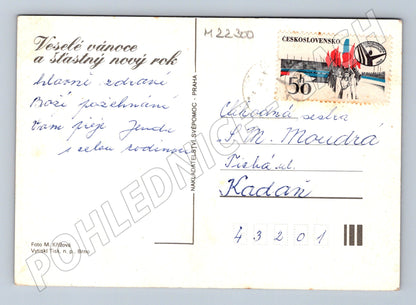 M 22 300
Veselé vánoce
a šťastný nový rok
hlavně zdraví
Boží požehnání
Vám přeje Jenda
s celou rodinou
Foto M. Křížová
Vytiskl Tisk, n. p., Brno
NAKLADATELSTVÍ SVÉPOMOC - PRAHA
ČESKOSLOVENSKO
50
Ctihodná sestra
S. M. Moudrá
Tichá ul.
Kadaň
43201
POHLEDNICE